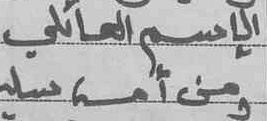 الإسم العائلي
ومن أمه